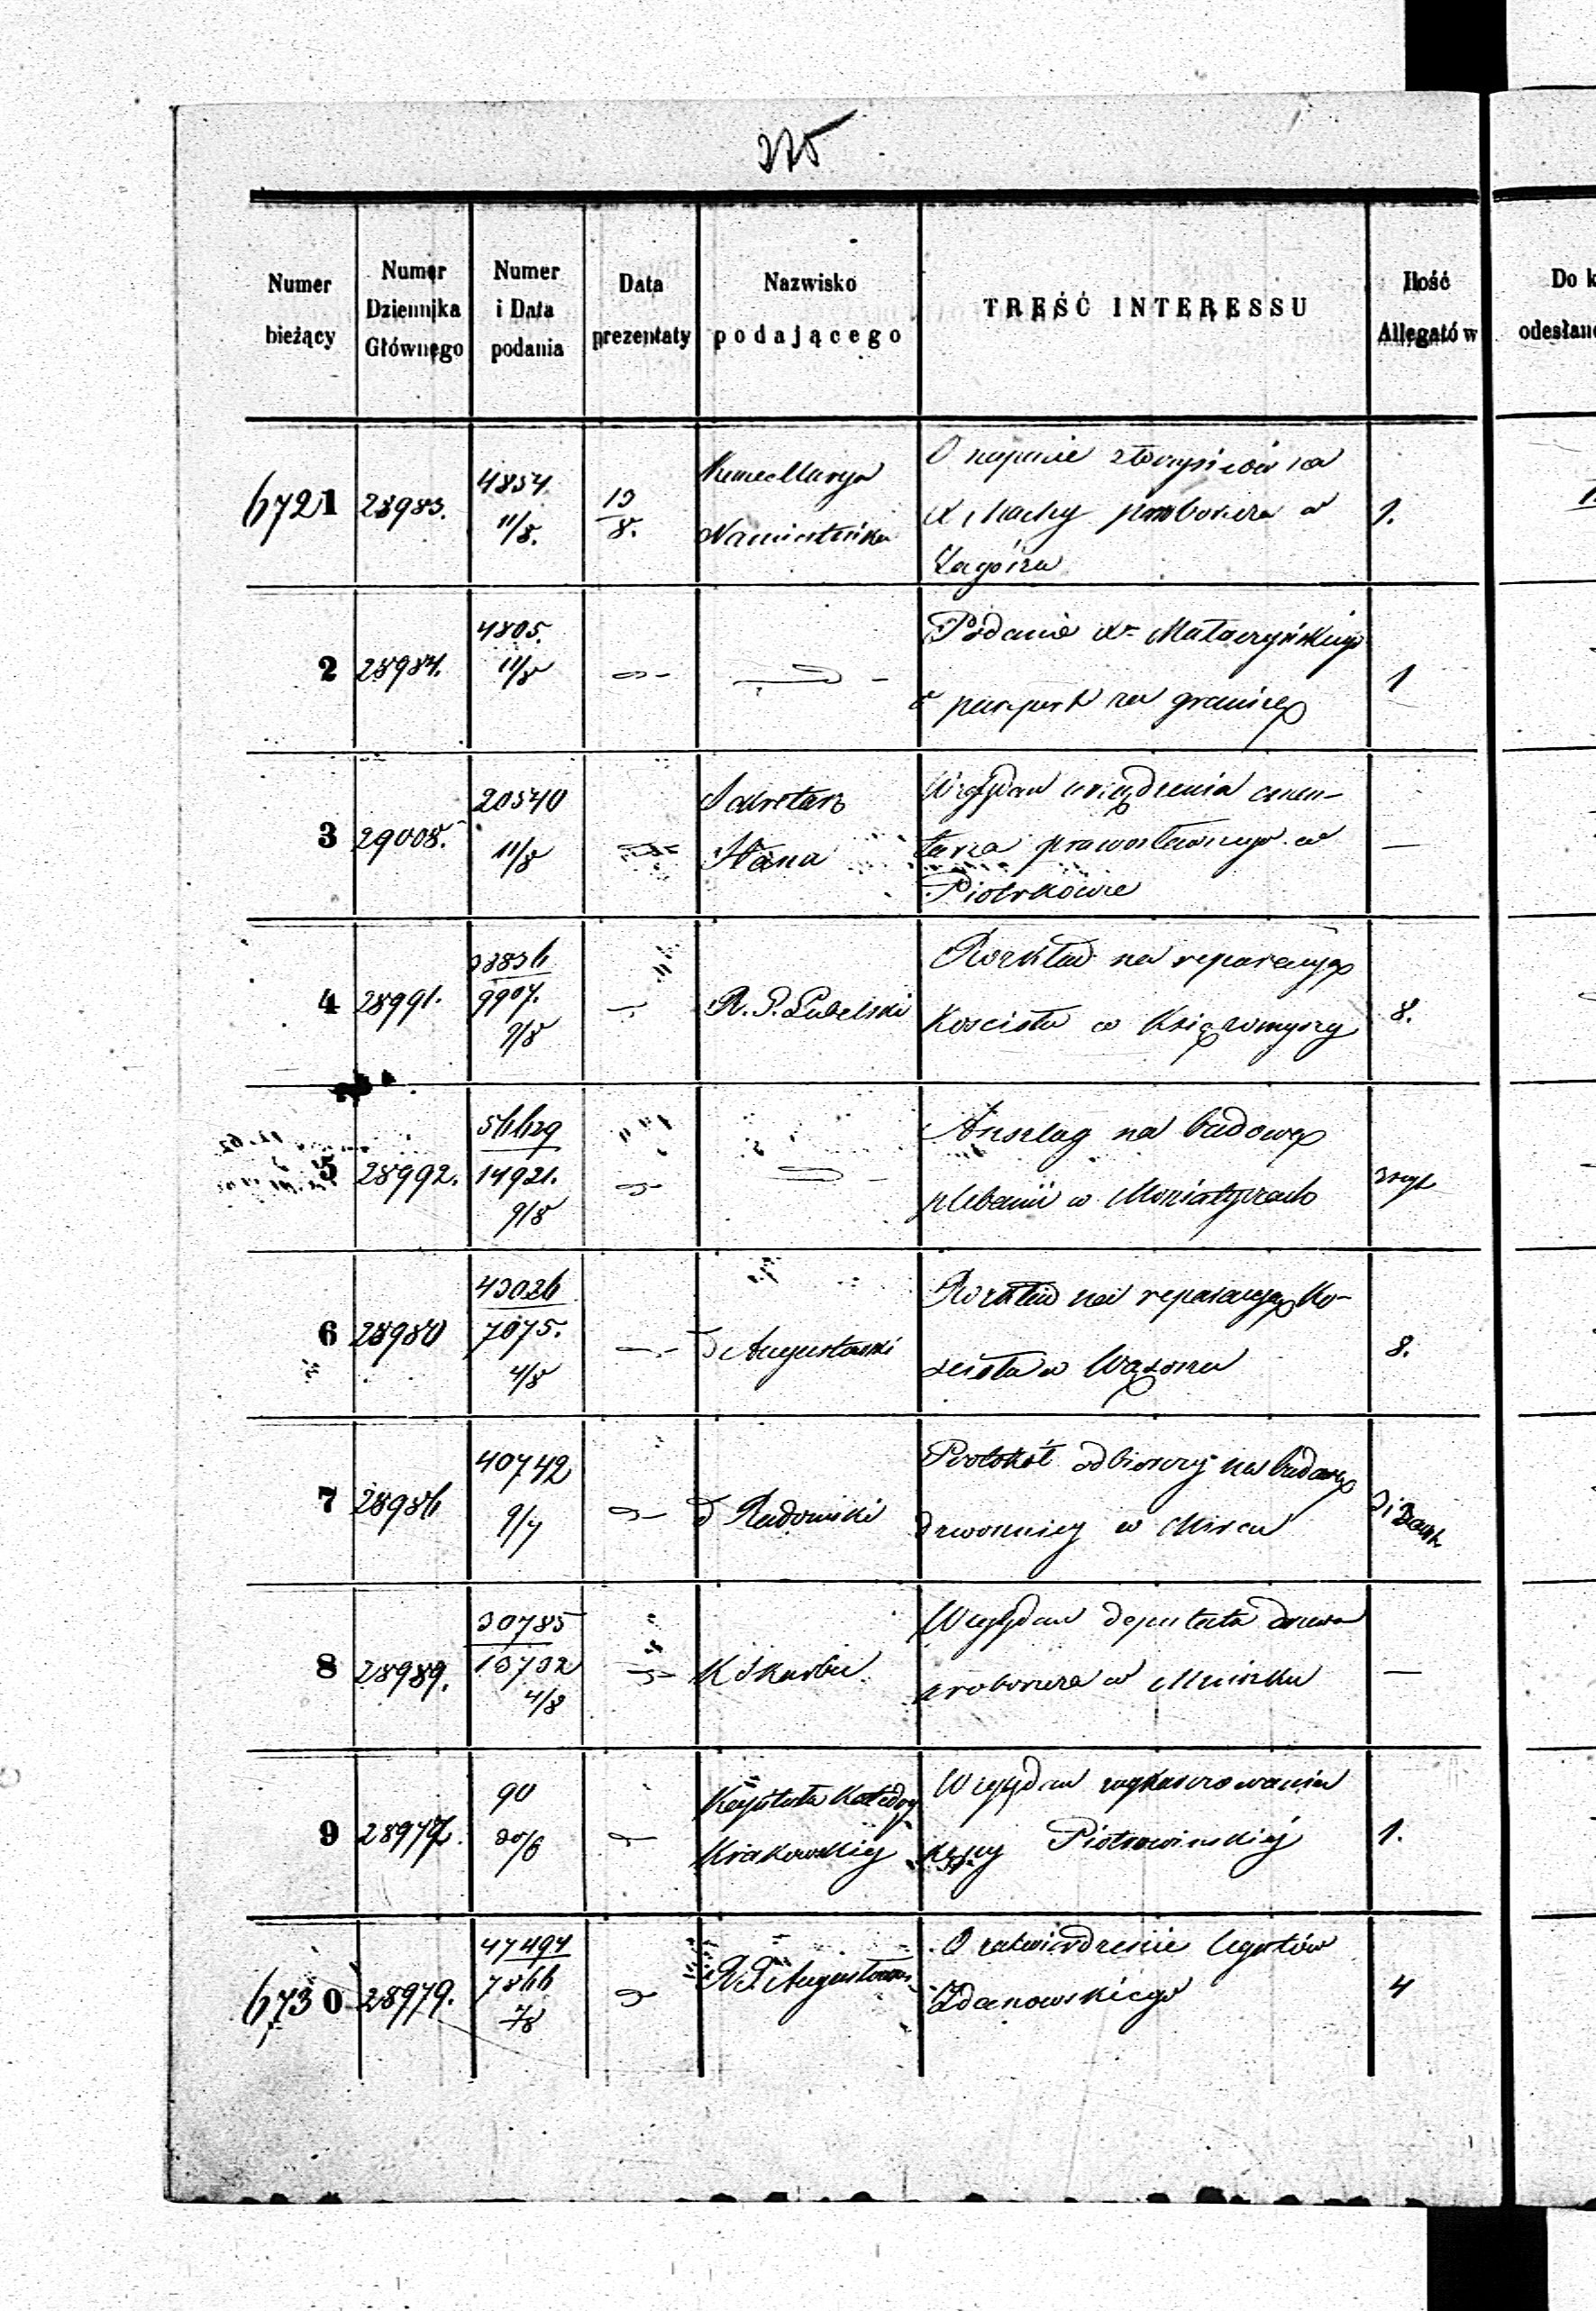 375
Numer bieżący
Numer Dziennika Głównego
Numer i Data podania
Data prezentaty
Nazwisko podającego
TREŚĆ INTERESSU
Ilość Allegatów
Do k
odesłan
6721 28983. 4854 11/8. 13/8. Namiestnika
O napaście złoczyńców na
X proboszcza w 1.
Zagórzu
2 28984. 4805. 11/8
Podanie X
o paszport za granicę 1
3 29008. 20540 11/8 Sekretarz Stanu
Względem urządzenia cmen-
tarza prawosławnego w —
Piotrkowie
4 28991. 33836 9907. 9/8 R. G. Lubelski
Rozkład na reparacyę
Kościoła w Księżomierzy 8.
5 28992. 56629 14921. 9/8
Anszlag na budowę
plebanii w Moniatyczach
6 28980 43026 7075. 4/8 d Augustowski
Rozkład na reparacyę Ko-
ścioła w Wąsoszu 8.
7 28986 40742 9/7 d Radomski
Protokół odbiorczy na budowę
dzwonnicy w Mircu
8 28989. 30785 13732 4/8 K Skarbu
Względem deputatu drzewa
proboszcza w —
9 28977. 90 30/6 Kapituła Katedry
Krakowskiej
Względem
Piotrowińskiej 1.
6730 28979. 47494 7866 7/8 R. G. Augustows.
O zatwierdzenie legatów
Zdanowskiego 4